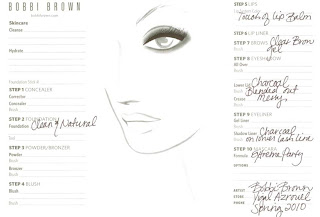 BOBBI BROWN
Skincare
Cleanse
Hydrate
STEP 1 CONCEALER
Corrector
Concealer
Brush
STEP 2 FOUNDATION
Foundation Clean & Natural
STEP 3 POWDER/BRONZER
Powder
Brush
Bronzer
Brush
STEP 4 BLUSH
STEP 5 LIPS
Touch of Lip Balm
STEP 6 LIP LINER
STEP 7 BROWS Clear Brow
Brush gel
STEP 8 EYESHADOW
All Over
Brush
Lower Lid Charcoal
Brush Blended out
Messy
STEP 9 EYELINER
Gel Liner
Brush
Shadow Liner Charcoal
Brush on lower lash line
STEP 10 MASCARA
Formula Extreme Party
OPTIONS
Bobbi Brown
Yigal Azrouel
Spring 2010